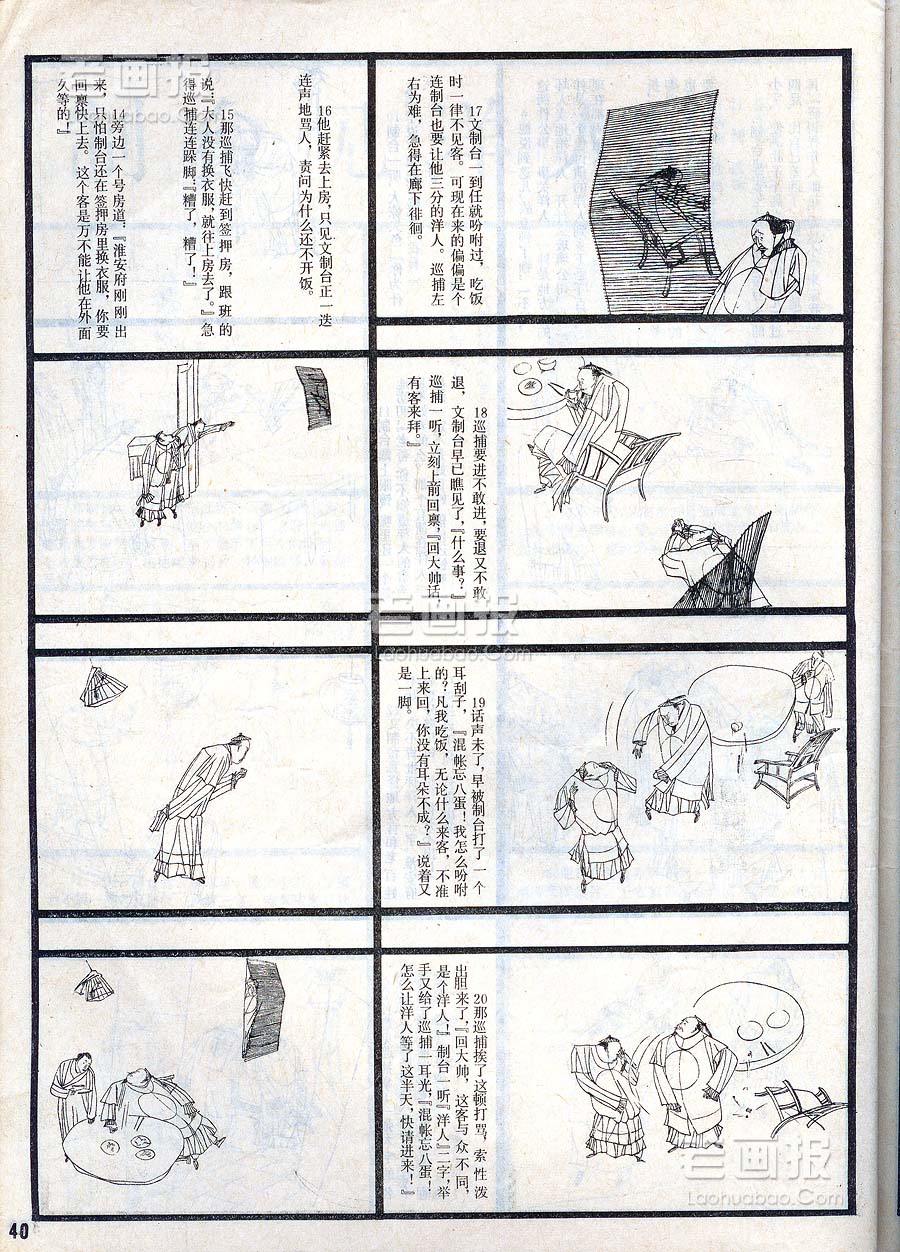 14旁边一个号房道：『淮安府刚刚出
来，只怕制台还在签押房里换衣服，你要
回禀快上去。这个客是万不能让他在外面
久等的。』
15那巡捕飞快赶到签押房，跟班的
说：『大人没有换衣服，就往上房去了。』急
得巡捕连连跺脚：『糟了，糟了！』
16他赶紧去上房，只见文制台正一迭
连声地骂人，责问为什么还不开饭。
17文制台一到任就吩咐过，吃饭
时一律不见客。可现在来的偏偏是个
连制台也要让他三分的洋人。巡捕左
右为难，急得在廊下徘徊。
18巡捕要进不敢进，要退又不敢
退，文制台早已瞧见了，『什么事？』
巡捕一听，立刻上前回禀，『回大帅话，
有客来拜。』
19话声未了，早被制台打了一个
耳刮子，『混帐忘八蛋！我怎么吩咐
的？凡我吃饭，无论什么来客，不准
上来回，你没有耳朵不成？』说着又
是一脚。
20那巡捕挨了这顿打骂，索性泼
出胆来了，『回大帅，这客与众不同，
是个洋人！』制台一听『洋人』二字，举
手又给了巡捕一耳光，『混帐忘八蛋！
怎么让洋人等了这半天，快请进来！』
40
老画报
老画报
Laohuabao.Com
老画报
Laohuabao.Com